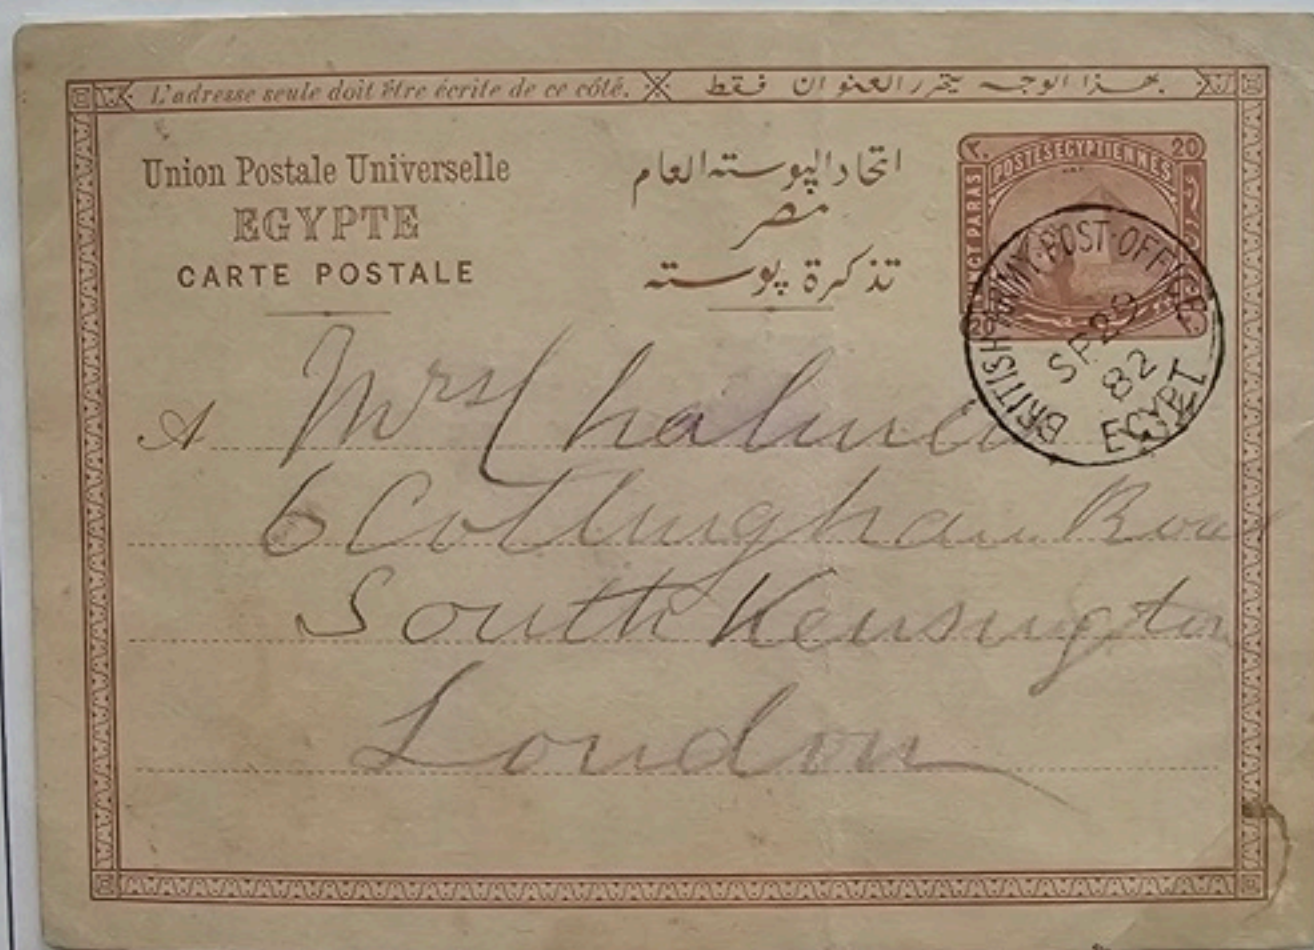 L'adresse seule doit être écrite de ce côté.
بهذا الوجه يحرر العنوان فقط
Union Postale Universelle
EGYPTE
CARTE POSTALE
اتحاد البوسته العام
مصر
تذكرة بوسته
٢٠ POSTES EGYPTIENNES 20
PARAS
20
BRITISH ARMY POST OFFICE
SP 29
82
EGYPT
A Mrs Chalmers
6 Collingham Road
South Kensington
London